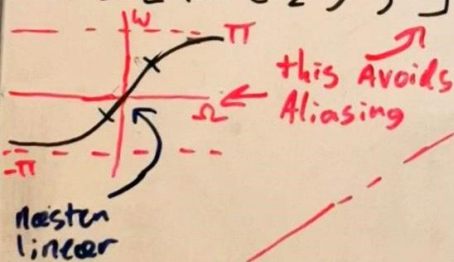 ω
π
this Avoids
Aliasing
Ω
-π
Meisten
linear